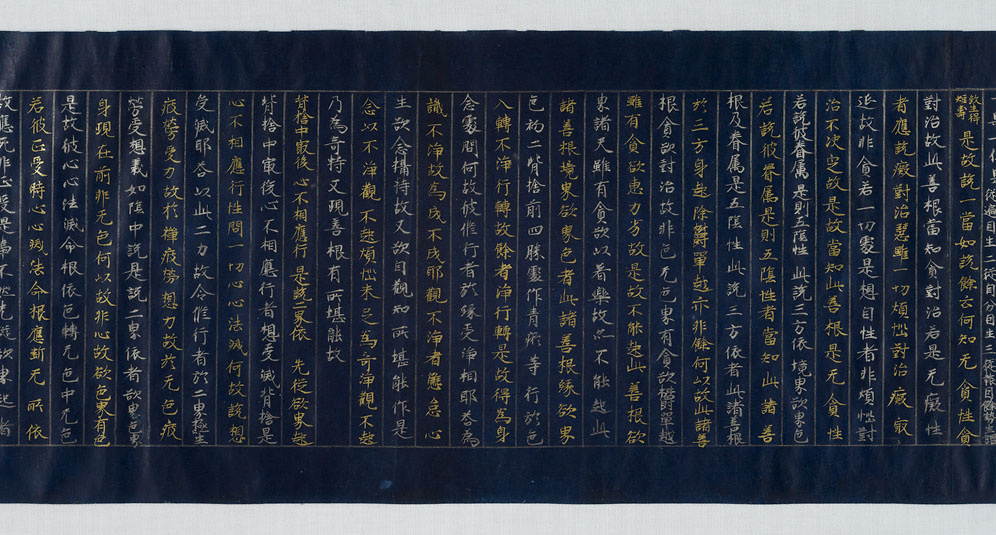 是故說一當如說餘云何知无貪性貪
對治故此善根當知貪對治若是无癡性
者應說癡對治慧雖一切煩惱對治癡冣
近故非貪若一切處是想自性者非煩惱對
治不决定故是故當知此善根是无貪性
若說彼眷属是則五陰性此說三方依境界欲界色
若說彼眷属是則五陰性者當知此諸善
根及眷属是五陰性此說三方依者此諸善根
於三方身起除欝單越亦非餘何以故此諸善
根貪欲對治故非色无色界有貪欲欝單越
雖有貪欲惠力劣故是故不能起此善根欲
界諸天雖有貪欲以著樂故亦不能起此
諸善根境界欲界色者此諸善根緣欲界
色初二背捨前四勝處作青瘀等行於色
入轉不淨行轉故餘者淨行轉是故得為身
念處問何故彼脩行者於緣更淨相耶荅為
識不淨故為成不成耶觀不淨者懈怠心
生欲令攝持故又欲自觀知所堪能作是
念以不淨觀不起煩惱未足為奇淨觀不起
乃為奇特又現善根有所堪能故
背捨中㝡後心不相應行是說二界依先從欲界起
背捨中㝡後心不相應行者想受滅背捨是
心不相應行性問一切心心法滅何故說想
受滅耶荅以此二力故令脩行者於二界極生
疲勞受力故於禪疲勞想力故於无色疲
勞受想義如陰中說是說二界依者欲界色界
身現在前非无色何以故非心故欲色界有色
是故彼心心法滅命根依色轉无色中无色
若彼正受時心心滅法命根應斷无所依